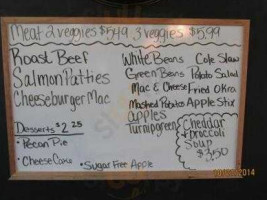 Meat 2 veggies $5.49 3 veggies $5.99
Roast Beef
Salmon Patties
Cheeseburger Mac
White Beans
Green Beans
Mac & Cheese
Mashed Potato
Apples
Turnip greens
Cole Slaw
Potato Salad
Fried Okra
Apple Stix
Desserts $2.25
• Pecan Pie
• Cheese Cake
• Sugar Free Apple
Cheddar
Broccoli
Soup
$3.50